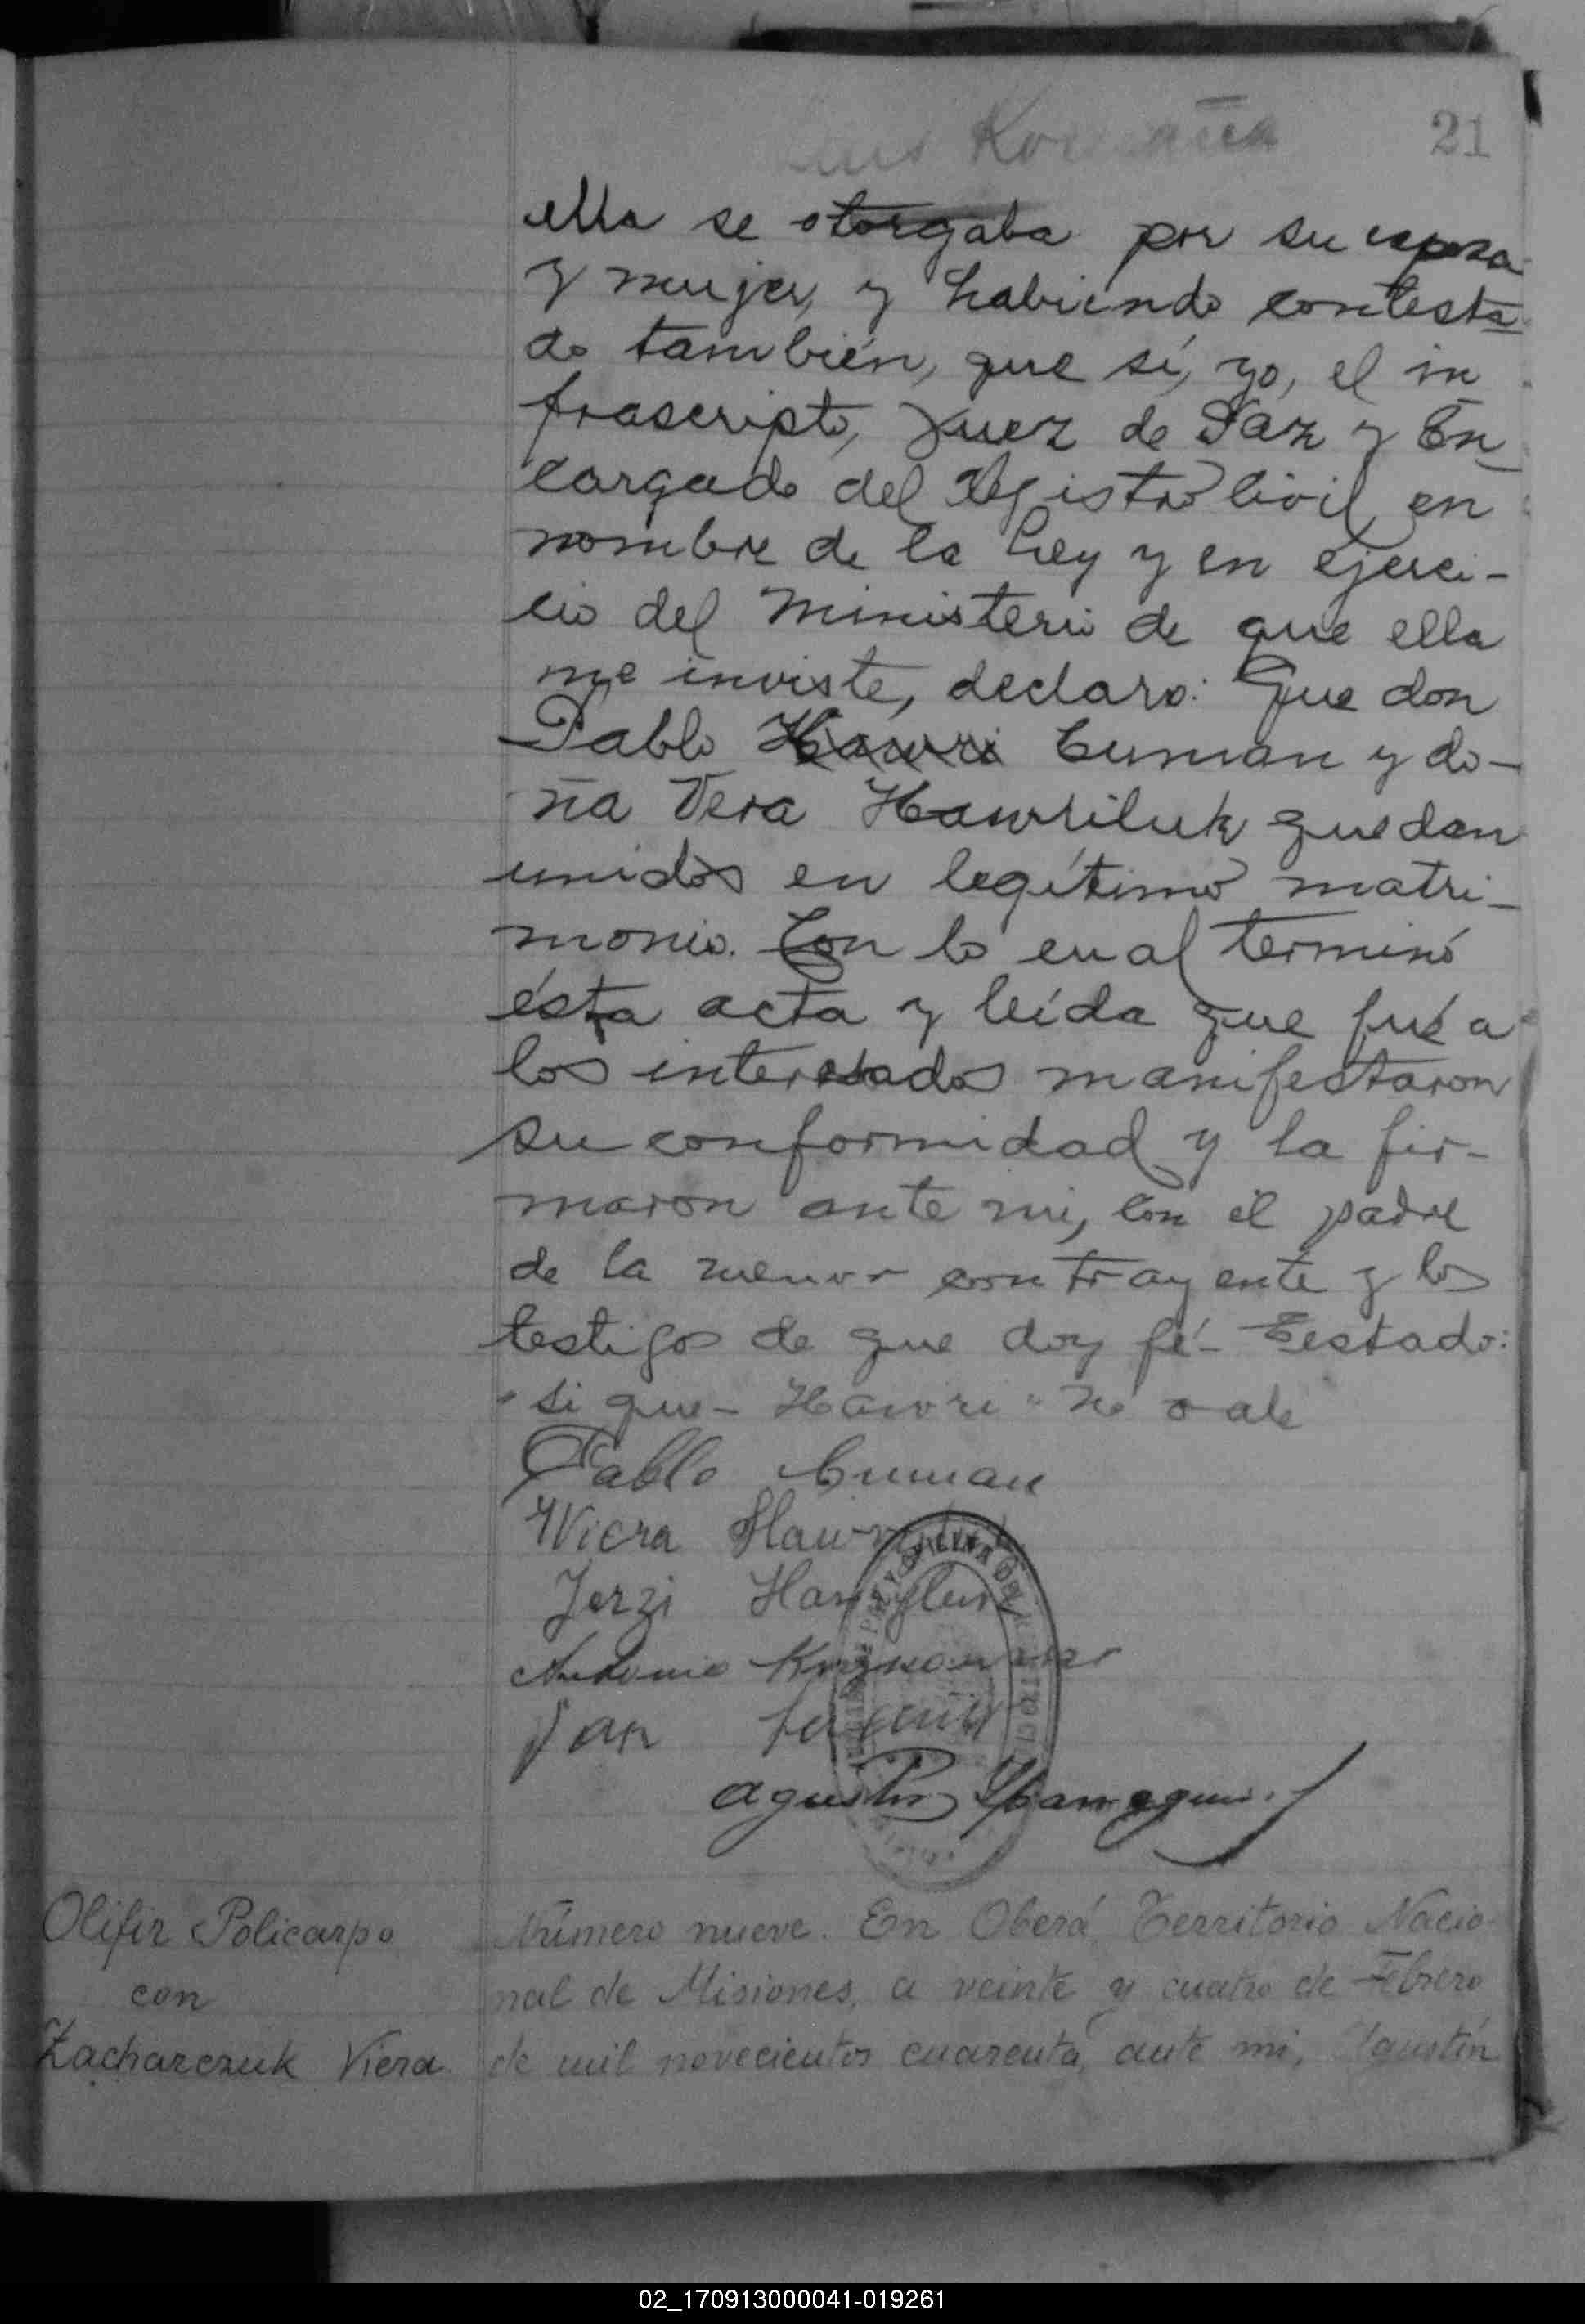 21
ella se otorgaba por su esposa
y mujer, y habiendo contesta
do también, que sí, yo, el in
frascripto, Juez de Paz y En
cargado del Registro Civil, en
nombre de la Ley y en ejerci-
cio del Ministerio de que ella
me inviste, declaro: Que don
Pablo Hawri Cuman y do-
ña Vera Hawriluk quedan
unidos en legítimo matri-
monio. Con lo cual terminó
ésta acta y leída que fué a
los interesados manifestaron
su conformidad y la fir-
maron ante mi, con el padre
de la menor contrayente y los
testigos de que doy fé- Testado:
"si que- Hawri" no vale
Pablo Cuman
Wiera
Jerzi
Antonio
Jan
Agustin
Olifir Policarpo
con
Zacharczuk Viera
Número nueve. En Oberá, Territorio Nacio-
nal de Misiones, a veinte y cuatro de Febrero
de mil novecientos cuarenta, ante mi, Agustín
02_170913000041-019261